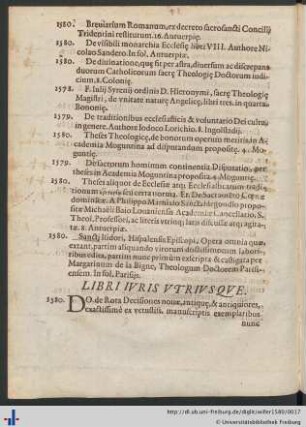 1580. Breuiarium Romanum, ex decreto sacrosancti Concilij
Tridentini restitutum. 16. Antuerpię.
1580. De visibili monarchia Ecclesię libri VIII. Authore Ni-
colao Sandero. In fol. Antuerpiæ.
1580. De diuinatione, quę fit per astra, diuersum ac discrepans
duorum Catholicorum sacrę Theologię Doctorum iudi-
cium. 8. Colonię.
1578. F. Iulij Syrenij ordinis D. Hieronymi, sacrę Theologię
Magistri, de vnitate naturę Angelicę, libri tres. in quarto.
Bononię.
1580. De traditionibus ecclesiasticis & voluntario Dei cultu
in genere. Authore Iodoco Lorichio. 8. Ingolstadij.
1580. Theses Theologicę, de bonorum operum merito, in A-
cademia Moguntina ad disputandum propositę. 4. Mo-
guntię.
1579. De sacrorum hominum continentia Disputatio, per
theses in Academia Moguntina proposita. 4. Moguntię.
1580. Theses aliquot de Ecclesiæ atq; Ecclesiasticarum tradi-
tionum
dominicæ. à Philippo Marnixio Sanctaldegondio proposi-
tæ Michaëli Baio Louaniensis Academiæ Cancellario, S.
Theol. Professori, ac literis vtrinq; latis discussæ atq; agita-
tæ. 8. Antuerpiæ.
1580. Sancti Isidori, Hispalensis Episcopi, Opera omnia quæ
extant, partim aliquando virorum doctissimorum labori-
bus edita, partim nunc primùm exscripta & castigata per
Margarinum de la Bigne, Theologum Doctorem Parisi-
ensem. In fol. Parisijs.
LIBRI IVRIS VTRIVSQVE.
1580. DO. de Rota Decisiones nouæ, antiquę, & antiquiores,
exactissimè ex vetustis manuscriptis exemplaribus
nunc
http://dl.ub.uni-freiburg.de/diglit/willer1580/0017
© Universitätsbibliothek Freiburg